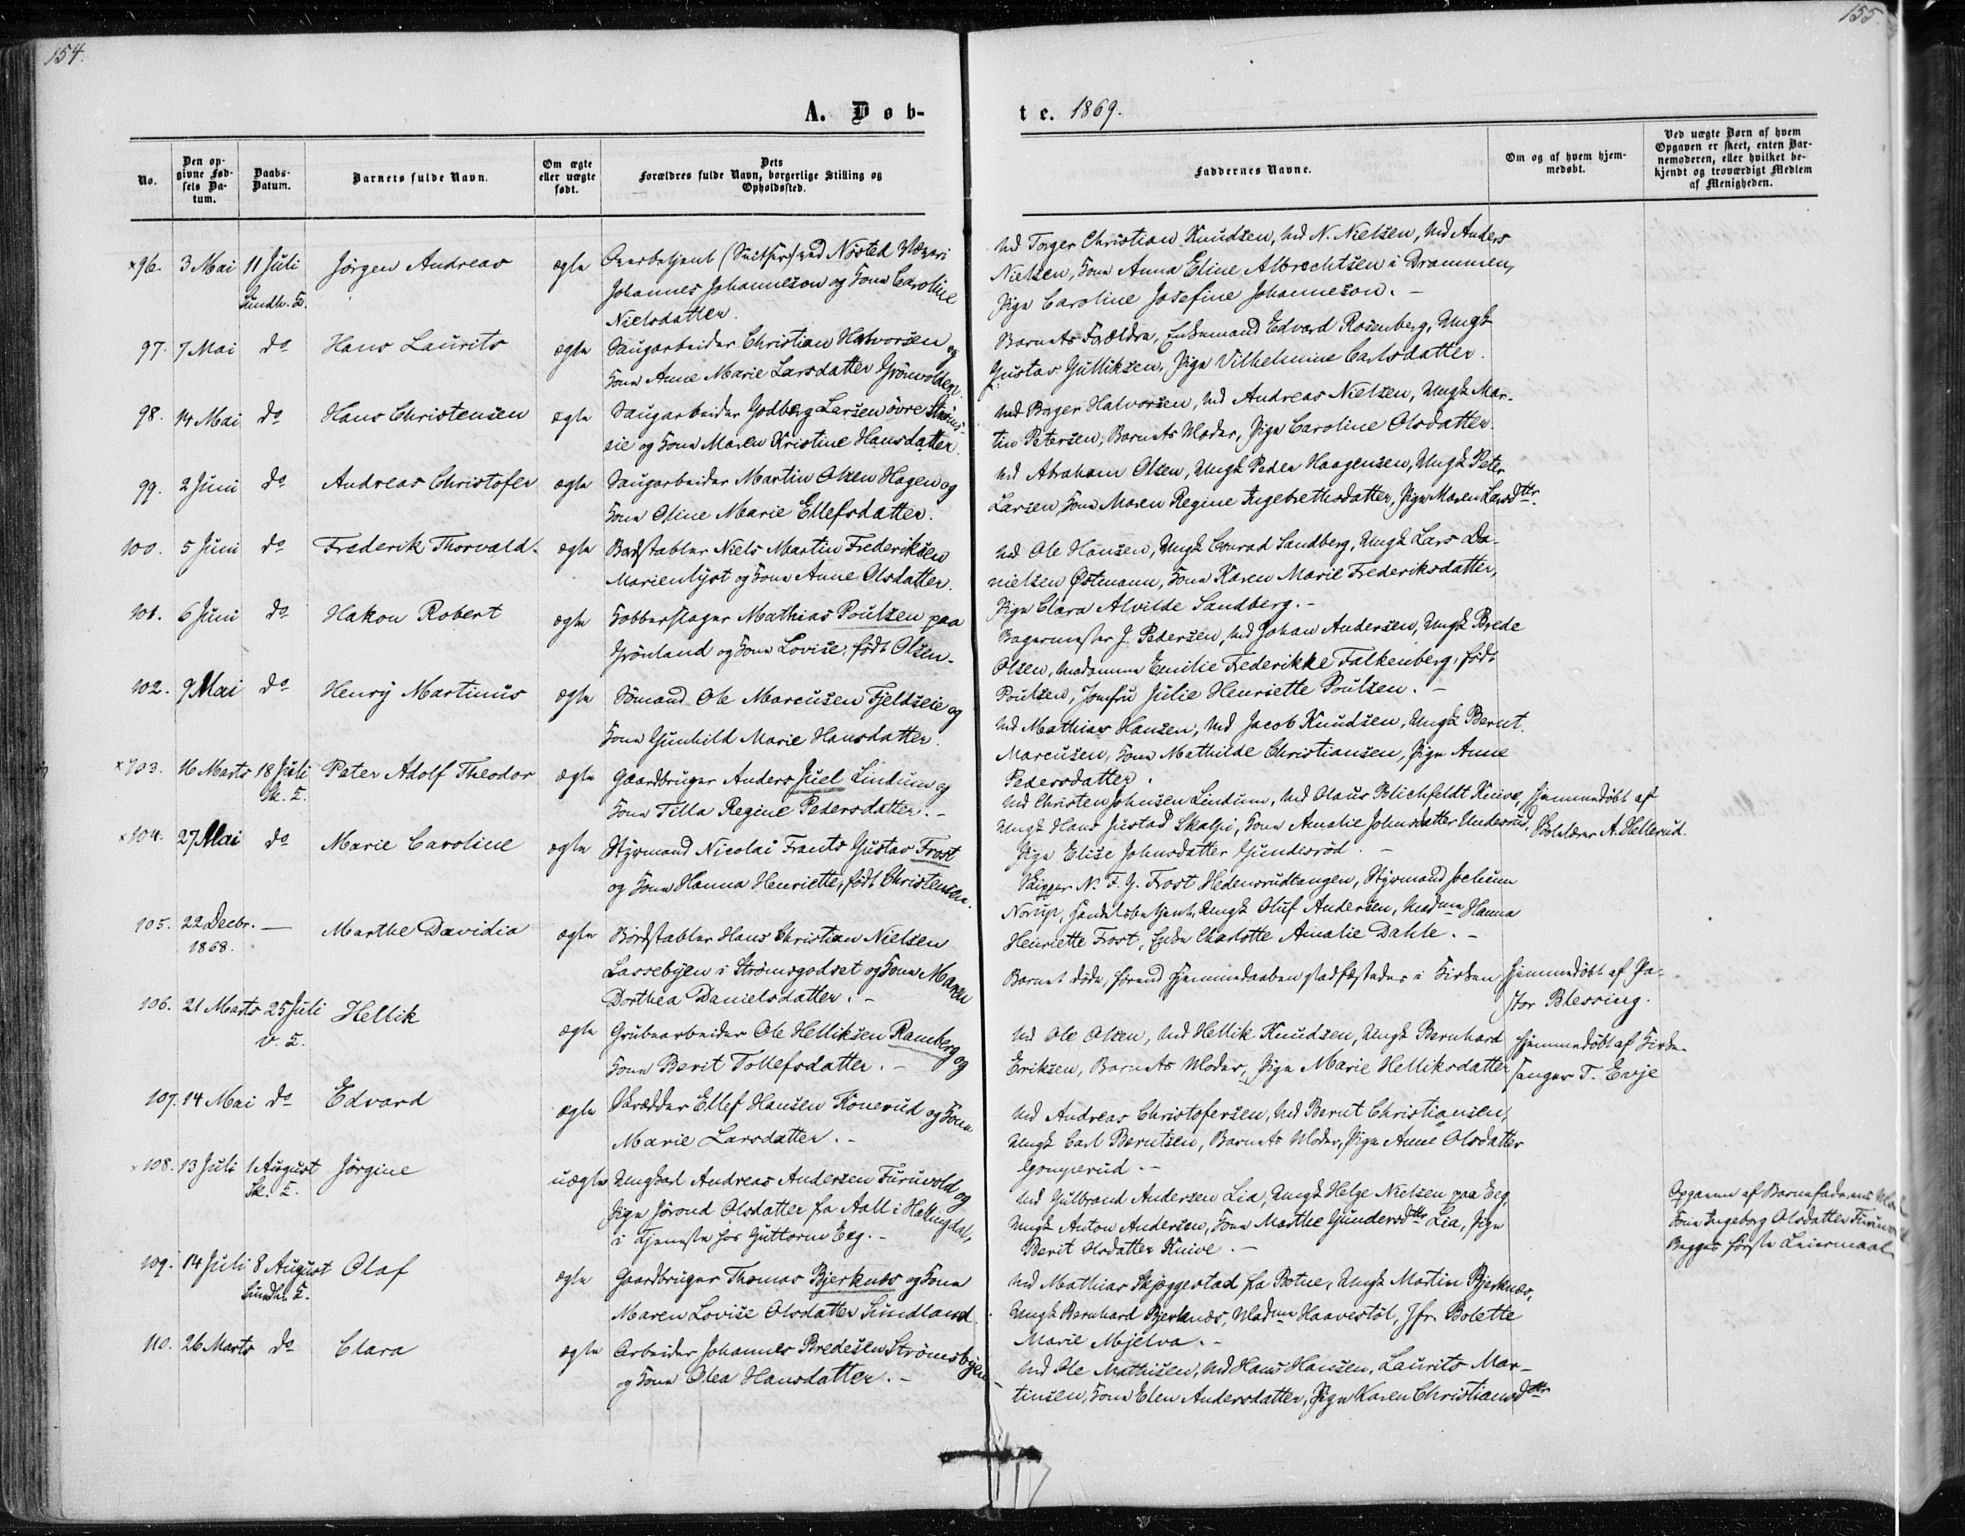 154.
155.
A. Døb-
te. 1869.
No.
Den op-
givne Fød-
sels Da-
tum.
Daabs-
Datum.
Barnets fulde Navn.
Om ægte
eller uægte
født.
Dets
Forældres fulde Navn, borgerlige Stilling og
Opholdssted.
Faddernes Navne.
Om og af hvem hjem-
medøbt.
Ved uægte Børn af hvem
Opgaven er skeet, enten Bar-
nemoderen, eller hvilket be-
kjendt og troværdigt Medlem
af Menigheden.
×96. 3 Mai 11 Juli Jörgen Andreas ægte
Sundh. K.
ved Nösted
Johannes Johanneson og Kone Caroline
Nielsdatter.
Md Torger Christian Knudsen, Md N. Nielsen, Md Anders
Nielsen, Kone Anna Eline Albrechtsen i Drammen,
Pige Caroline Josefine Johanneson. -
97. 7 Mai do Hans Laurits ægte
Saugarbeider Christian Halvorsen og
Kone Anne Marie Larsdatter Grönvolden.
Barnets Forældre, Enkemand Edvard Rosenberg, Ungk
Gustav Gulliksen, Pige Vilhelmine Carlsdatter.
98. 14 Mai do Hans Christensen ægte
Saugarbeider Godberg Larsen övre Ströms-
eie og Kone Maren Kristine Hansdatter.
Md Halvorsen, Md Andreas Nielsen, Ungk Mar-
tin Petersen, Barnets Moder, Pige Caroline Olsdatter.
99. 2 Juni do Andreas Christofer ægte
Saugarbeider Martin Olsen Hagen og
Kone Oline Marie Ellefsdatter.
Md Abraham Olsen, Ungk Peder Haagensen, Ungk Peter
Larsen, Kone Maren Regine Ingebrethsdatter, Pige Maren Larsdttr.
100. 5 Juni do Frederik Thorvald. ægte
Bordstabler Niels Martin Frederiksen
Marienlyst og Kone Anne Olsdatter.
Md Ole Hansen, Ungk Conrad Sandberg, Ungk Lars Da-
nielsen Østmann, Kone Karen Marie Frederiksdatter,
Pige Clara Alvilde Sandberg. -
101. 6 Juni do Hakon Robert ægte
Kobberslager Mathias Poulsen paa
Grönland og Kone Lovise, födt Olsen.
Bagermester J. Pedersen, Md Johan Andersen, Ungk Brede
Olsen, Madamme Emilie Frederikke Falkenberg, födt
Poulsen, Jomfru Julie Henriette Poulsen. -
102. 9 Mai do Henry Martinus ægte
Sömand Ole Marcusen Fjeldseie og
Kone Gunhild Marie Hansdatter.
Md Mathias Hansen, Md Jacob Knudsen, Ungk Bernt
Marcusen, Kone Mathilde Christiansen, Pige Anne
Pedersdatter.
×103. 16 Marts 18 Juli Peter Adolf Theodor ægte
Sk. K.
Gaardbruger Anders Juel Lindum og
Kone Tilla Regine Pedersdatter. -
Md Christen Johnsen Lindum, Md Olaus Blichfeldt Knive,
Ungk Hans Justad Skalpi, Kone Amalie Johnsdatter Underud,
Pige Elise Johnsdatter Gunderöd. -
Hjemmedöbt af
Skolelærer A. Hellerud.
×104. 27 Mai do Marie Caroline ægte
Styrmand Nicolai Frants Gustav Frost
og Kone Hanna Henriette, födt Christensen.
Skipper N. F. G. Frost Hedensrudtangen, Styrmand Jochum
Norup, Handelsbetjent, Ungk Oluf Andersen, Madme Hanna
Henriette Frost, Enke Charlotte Amalie Dahle. -
105. 22 Decbr. — Marthe Davidia ægte
1868.
Bordstabler Hans Christian Nielsen
Lassebyen i Strömsgodset og Kone Maren
Dorthea Danielsdatter. -
Barnet döde, förend Hjemmedaaben stadfæstedes i Kirken
Hjemmedöbt af Pa-
stor Blessing.
106. 21 Marts 25 Juli Hellik ægte
V. K.
Grubearbeider Ole Helliksen Ramberg og
Kone Berit Tollefsdatter. -
Md Ole Olsen, Md Hellik Knudsen, Ungk Bernhard
Eriksen, Barnets Moder, Pige Marie Helliksdatter
Hjemmedöbt af Kirke-
sanger T. Eeeje
107. 14 Mai do Edvard ægte
Skrædder Ellef Hansen Konerud og Kone
Marie Larsdatter. -
Md Andreas Christofersen, Md Bernt Christiansen,
Ungk Carl Berntsen, Barnets Moder, Pige Anne Olsdatter
Gomperud. -
×108. 13 Juli 1 August Jörgine uægte
Sk. K.
Ungkarl Andreas Andersen Furuvold og
Pige Jörond Olsdatter fra Aall i Hallingdal,
i Tjeneste hos Guttorm Eeg. -
Md Gulbrand Andersen Lia, Ungk Helge Nielsen paa Eeg,
Ungk Anton Andersen, Kone Marthe Gundersdttr Lia, Pige
Berit Olsdatter Knive. -
Opgaven af Barnefaderens
Kone Ingeborg Olsdatter
Begges förste Leiermaal
109. 14 Juli 8 August Olaf ægte
Sundh. K.
Gaardbruger Thomas Bjerknæs og Kone
Maren Lovise Olsdatter Sundland.
Md Mathias Skjeggestad fra Botne, Ungk Martin Bjerknæs,
Ungk Bernhard Bjerknæs, Madme Haavestöl, Jfr. Bolette
Marie Mjelva. -
110. 26 Marts do Clara ægte
Arbeider Johannes Bredesen Strömsbyen
og Kone Olea Hansdatter. -
Md Ole Mathisen, Md Hans Hansen, Laurits Mar-
tinsen, Kone Elen Andersdatter, Pige Karen Christiansdttr